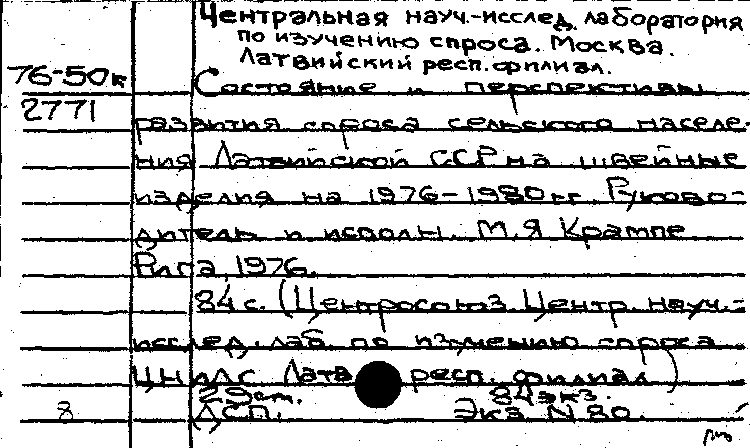 Центральная науч.-исслед. лаборатория
по изучению спроса. Москва.
Латвийский респ. филиал.
76-50к Состояние и перспективы
2771 развития спроса сельского населе-
ния Латвийской ССР на швейные
изделия на 1976-1980 гг. Руково-
дитель и исполн. М.Я Крампе
Рига, 1976.
84 с. (Центросоюз. Центр. науч.-
исслед. лаб. по изучению спроса
ЦНИЛС Латв респ. филиал)
29см. 84 экз.
8 ДСП. Экз N 80.